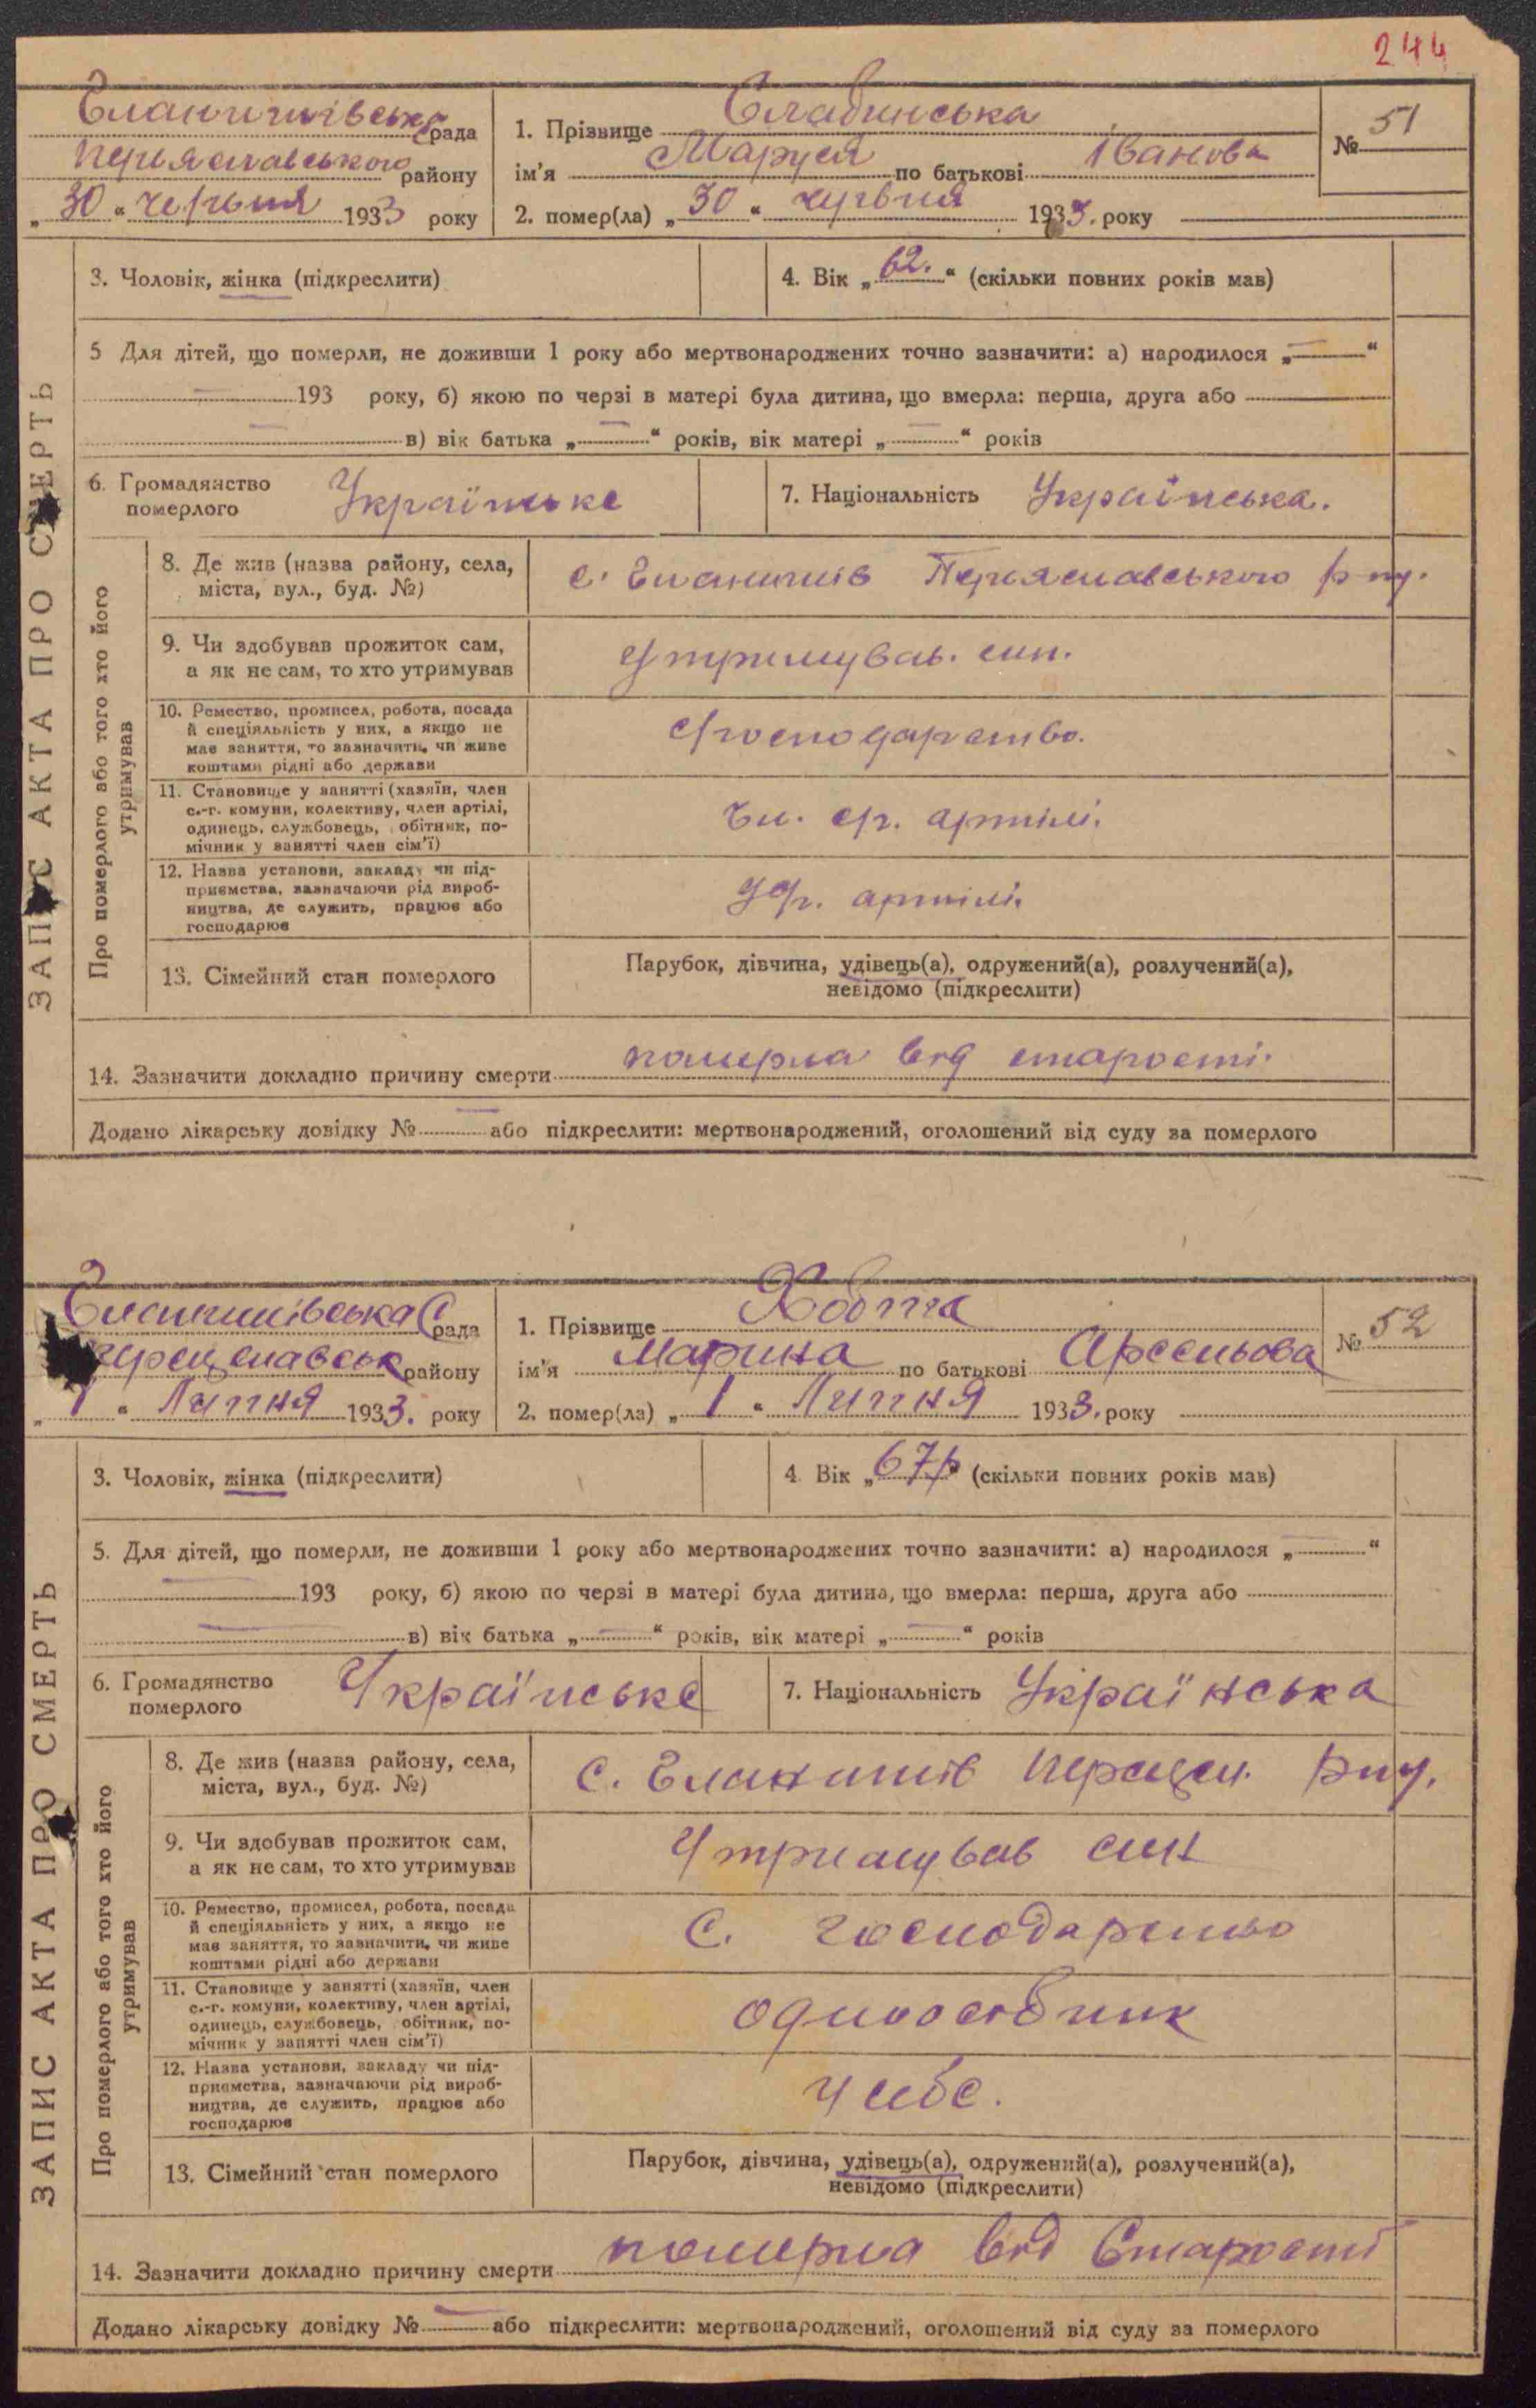 244
Єланишівська рада
Переяславського району
„ 30 “ червня 1933 року
1. Прізвище Слабинська
ім'я Маруся по батькові Іванова
№ 51
2. помер(ла) „ 30 “ червня 1933. року
ЗАПИС АКТА ПРО СМЕРТЬ
3. Чоловік, жінка (підкреслити)
4. Вік „ 62. “ (скільки повних років мав)
5 Для дітей, що померли, не доживши 1 року або мертвонароджених точно зазначити: а) народилося „ — “
— 193 року, б) якою по черзі в матері була дитина, що вмерла: перша, друга або
— в) вік батька „ — “ років, вік матері „ — “ років
6. Громадянство
померлого
Українське
7. Національність Українська.
Про померлого або того хто його
утримував
8. Де жив (назва району, села,
міста, вул., буд. №)
с. Єланишів Переяславського р-ну.
9. Чи здобував прожиток сам,
а як не сам, то хто утримував
Утримував. син.
10. Ремество, промисел, робота, посада
й спеціяльність у них, а якщо не
має заняття, то зазначити, чи живе
коштами рідні або держави
с/господарство.
11. Становище у занятті (хазяїн, член
с.-г. комуни, колективу, член артілі,
одинець, службовець, обітник, по-
мічник у занятті член сім'ї)
Чл. с/г. артілі.
12. Назва установи, закладу чи під-
приємства, зазначаючи рід вироб-
ництва, де служить, працює або
господарює
у с/г. артілі.
13. Сімейний стан померлого
Парубок, дівчина, удівець(а), одружений(а), розлучений(а),
невідомо (підкреслити)
14. Зазначити докладно причину смерти померла від старості.
Додано лікарську довідку № — або підкреслити: мертвонароджений, оголошений від суду за померлого
Єланишівська С рада
Переяславськ району
„ 1 “ Липня 1933. року
1. Прізвище Ковта
ім'я Марина по батькові Арсеньова
№ 52
2. помер(ла) „ 1 “ Липня 1933. року
ЗАПИС АКТА ПРО СМЕРТЬ
3. Чоловік, жінка (підкреслити)
4 Вік „ 67р “ (скільки повних років мав)
5. Для дітей, що померли, не доживши 1 року або мертвонароджених точно зазначити: а) народилося „ — “
— 193 року, б) якою по черзі в матері була дитина, що вмерла: перша, друга або
— в) вік батька „ — “ років, вік матері „ — “ років
6. Громадянство
померлого
Українське
7. Національність Українська
Про померлого або того хто його
утримував
8. Де жив (назва району, села,
міста, вул., буд. №)
С. Єланишів Переясл. р-ну.
9. Чи здобував прожиток сам,
а як не сам, то хто утримував
Утримував син
10. Ремество, промисел, робота, посада
й спеціяльність у них, а якщо не
має заняття, то зазначити, чи живе
коштами рідні або держави
С. господарство
11. Становище у занятті (хазяїн, член
с.-г. комуни, колективу, член артілі,
одинець, службовець, обітник, по-
мічник у занятті член сім'ї)
одноосібник
12. Назва установи, закладу чи під-
приємства, зазначаючи рід вироб-
ництва, де служить, працює або
господарює
У себе.
13. Сімейний стан померлого
Парубок, дівчина, удівець(а), одружений(а), розлучений(а),
невідомо (підкреслити)
14. Зазначити докладно причину смерти померла від Старості
Додано лікарську довідку № — або підкреслити: мертвонароджений, оголошений від суду за померлого